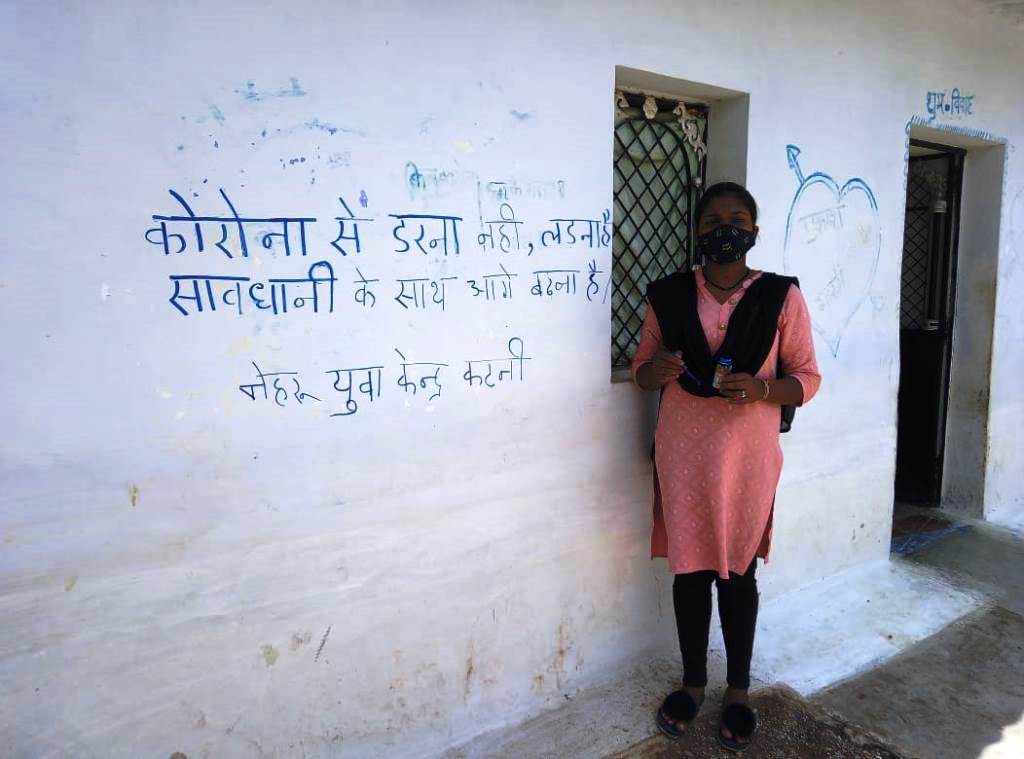 कोरोना से डरना नही, लडना है
सावधानी के साथ आगे बढना है/
नेहरू युवा केन्द्र कटनी
शुभ विवाह